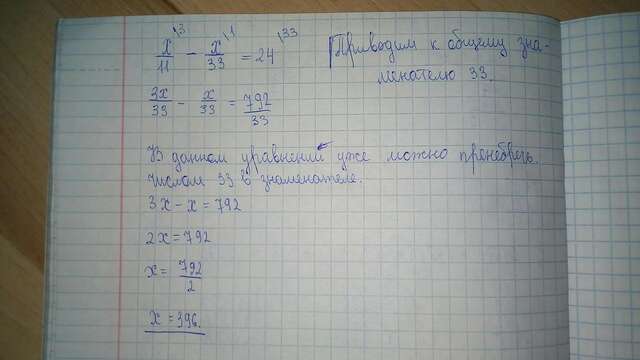 x/11 \3 − x/33 \1 = 24 \33
Приводим к общему зна-
менателю 33.
3x/33 − x/33 = 792/33
В данном уравнении уже можно пренебречь
числом 33 в знаменателе.
3x − x = 792
2x = 792
x = 792/2
x = 396.